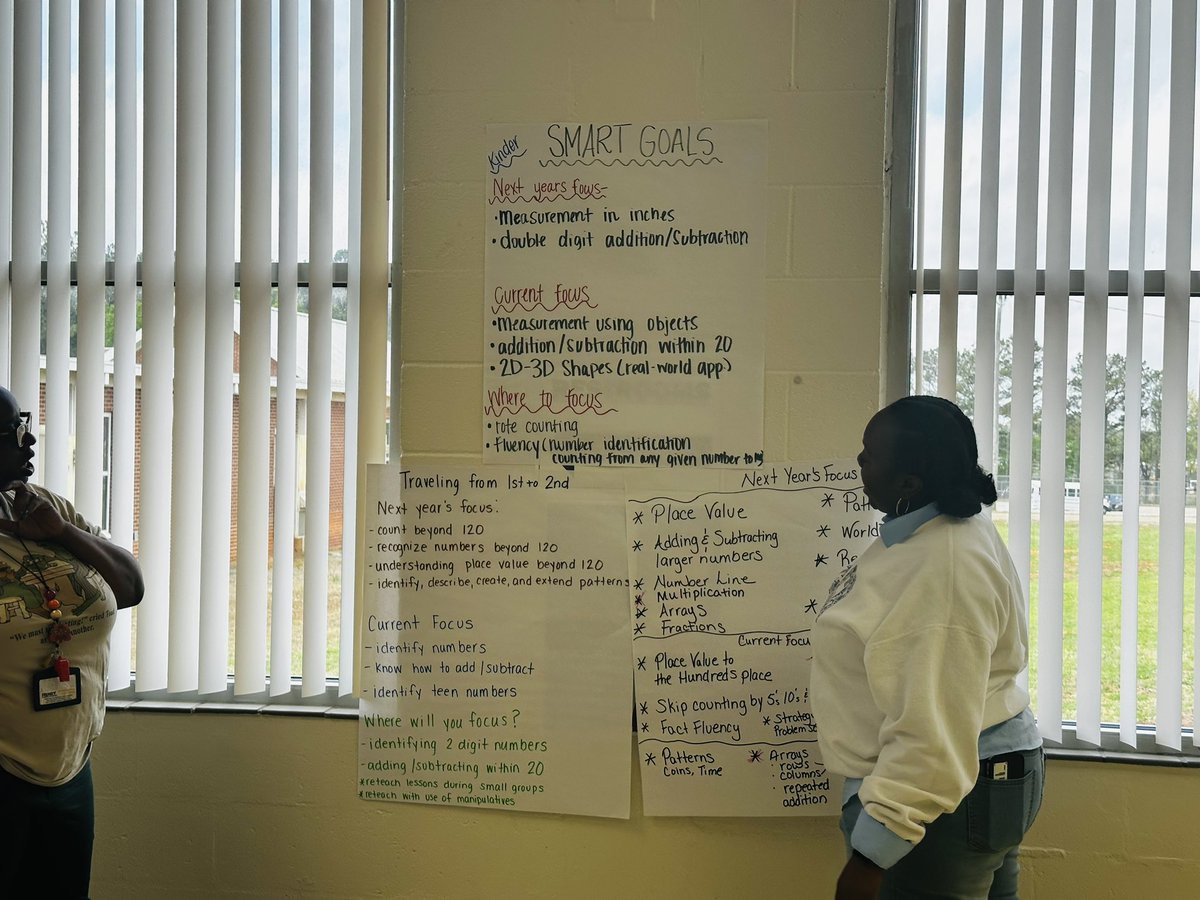 Kinder
SMART GOALS
Next years fous-
•Measurement in inches
•double digit addition/Subtraction
Current focus
•Measurement using objects
•addition/subtraction within 20
•2D-3D Shapes (real-world app.)
Where to focus
•rote counting
•Fluency (number identification
counting from any given number to
Traveling from 1st to 2nd
Next year's focus:
- count beyond 120
- recognize numbers beyond 120
- understanding place value beyond 120
- identify, describe, create, and extend patterns
Current Focus
- identify numbers
- know how to add/subtract
- identify teen numbers
Where will you focus?
- identifying 2 digit numbers
- adding/subtracting within 20
*reteach lessons during small groups
*reteach with use of manipulatives
Next Year's Focus
* Place Value
* Adding & Subtracting
larger numbers
* Number Line
* Multiplication
* Arrays
* Fractions
* Patt
* World
* Re
*
Current Focu
* Place Value to
the Hundreds place
* Skip counting by 5's, 10's,
* Fact Fluency
* Strateg
Problem So
* Patterns
Coins, Time
* Arrays
· rows
· columns
· repeated
addition
"We must
cried
another.